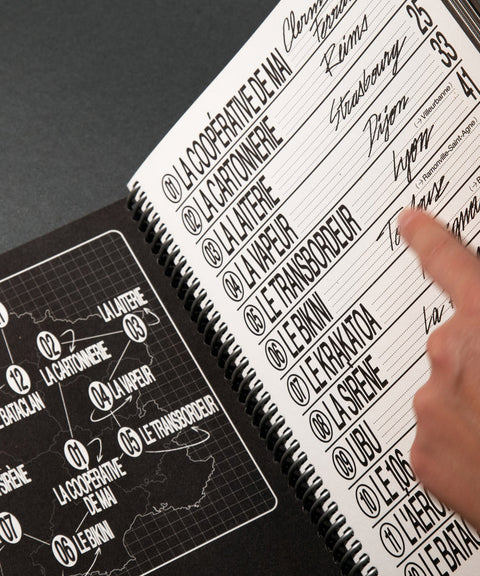 01 LA COOPÉRATIVE DE MAI
02 LA CARTONNERIE Reims 25
03 LA LAITERIE Strasbourg 33
04 LA VAPEUR Dijon 41
05 LE TRANSBORDEUR Lyon (→Villeurbanne)
06 LE BIKINI (→Ramonville-Saint-Agne)
07 LE KRAKATOA
08 LA SIRÈNE La
09 UBU
10 LE 106
11
LE
03 LA LAITERIE
02 LA CARTONNERIE
12
04 LA VAPEUR
05 LE TRANSBORDEUR
01 LA COOPÉRATIVE
DE MAI
07
06 LE BIKINI